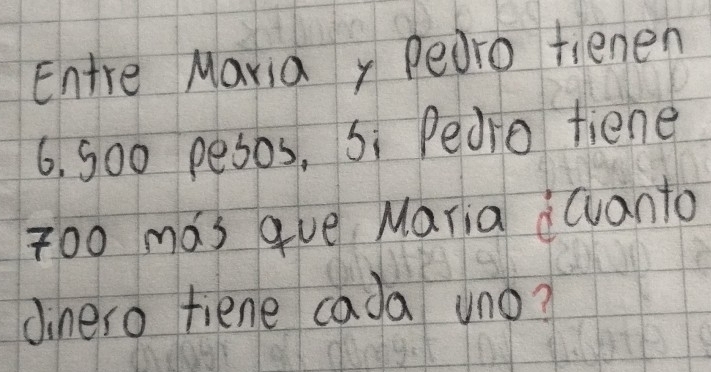 Entre Maria y Pedro tienen
6.500 pesos, Si Pedro tiene
700 más que Maria ¿cuanto
dinero tiene cada uno?